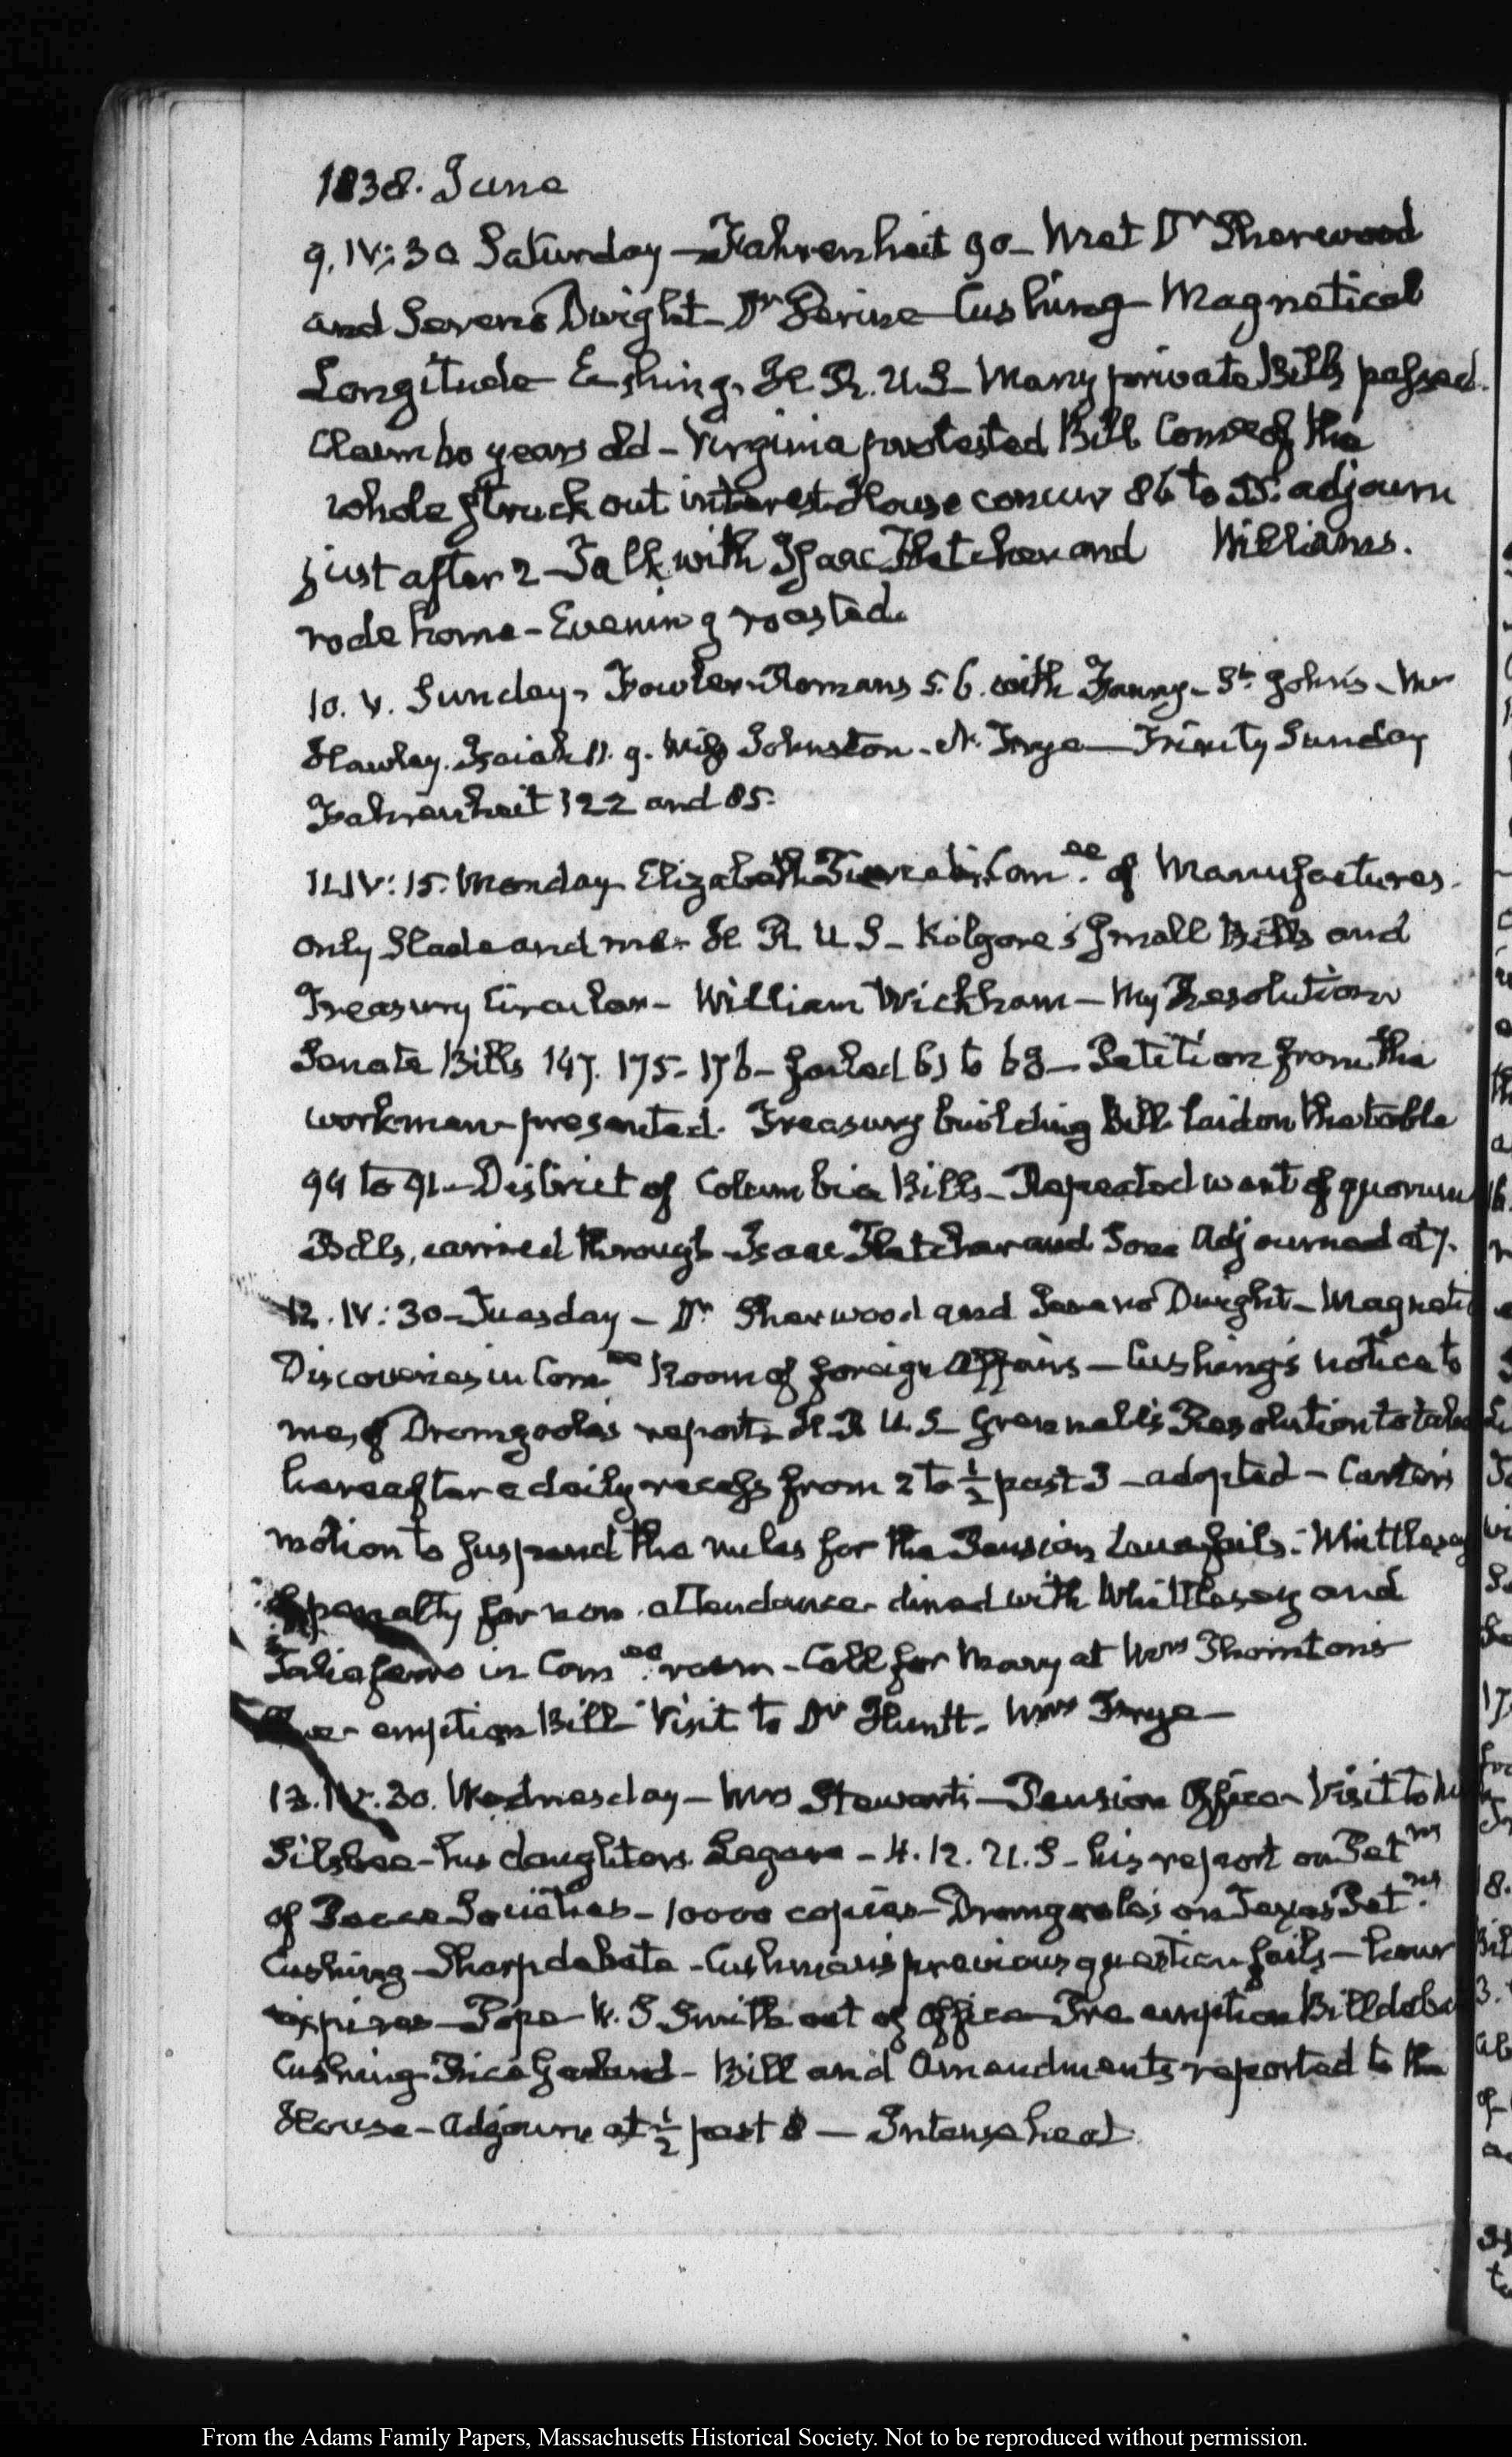 1838. June
9. IV:30 Saturday — Fahrenheit 90 — Met Dr Sherwood
and Sereno Dwight — Dr Cushing — Magnetical
Longitude H. R. U.S — Many private Bills passed.
Claim 60 years old — Virginia protested Bill Comee of the
whole struck out interest House concur 86 to 55. adjourn
just after 2 — Talk with Isaac Fletcher and Williams.
rode home — Evening roasted.
10. V. Sunday — Fowler Romans 5. 6. with Fanny — St. John's — Mr
Hawley. Isaiah 11. 9. Miss Johnston — N. Frye — Trinity Sunday
Fahrenheit 122 and 85.
11. IV:15. Monday Elizabeth Comee. of Manufactures.
only Slade and me — H. R. U S — Kilgore's small Bills and
Treasury Circular — William Wickham — My Resolution
Senate Bills 147. 175. 176 — failed 61 to 63 — Petition from the
workmen presented. Treasury building Bill laid on the table
94 to 91 — District of Columbia Bills — Repeated want of quorum
Bills, carried through — Isaac Fletcher and Adjourned at 7.
12. IV:30 — Tuesday — Dr Sherwood and Sereno Dwight — Magnetic
Discoveries in Comee Room of foreign Affairs — Cushing's notice to
me, of Dromgoole's report — H. R U.S — Grennell's Resolution to take
hereafter a daily recess from 2 to ½ past 3 — adopted — Carter's
motion to suspend the rules for the Pension Laws fails — Whittlesey
penalty for non attendance — dined with Whittlesey and
Taliaferro in Comee. room — Call for Mary at Mrs Thornton's
Pre-emption Bill — Visit to Dr Huntt — Mrs Frye —
13. IV.30. Wednesday — Mrs Stewart — Pension Office — Visit to Mr
Silsbee — his daughters. Legare — H. R. U.S — his report on Petns
of Peace Societies — 10000 copies — Dromgoole's on Texas Petns.
Cushing — Sharp debate — Cushman's previous question fails — hour
expires — Pope — Smith out of Office — Pre emption Bill deba
Cushing Rice Garland — Bill and Amendments reported to the
House — Adjourn at ½ past 8 — Intense heat
From the Adams Family Papers, Massachusetts Historical Society. Not to be reproduced without permission.